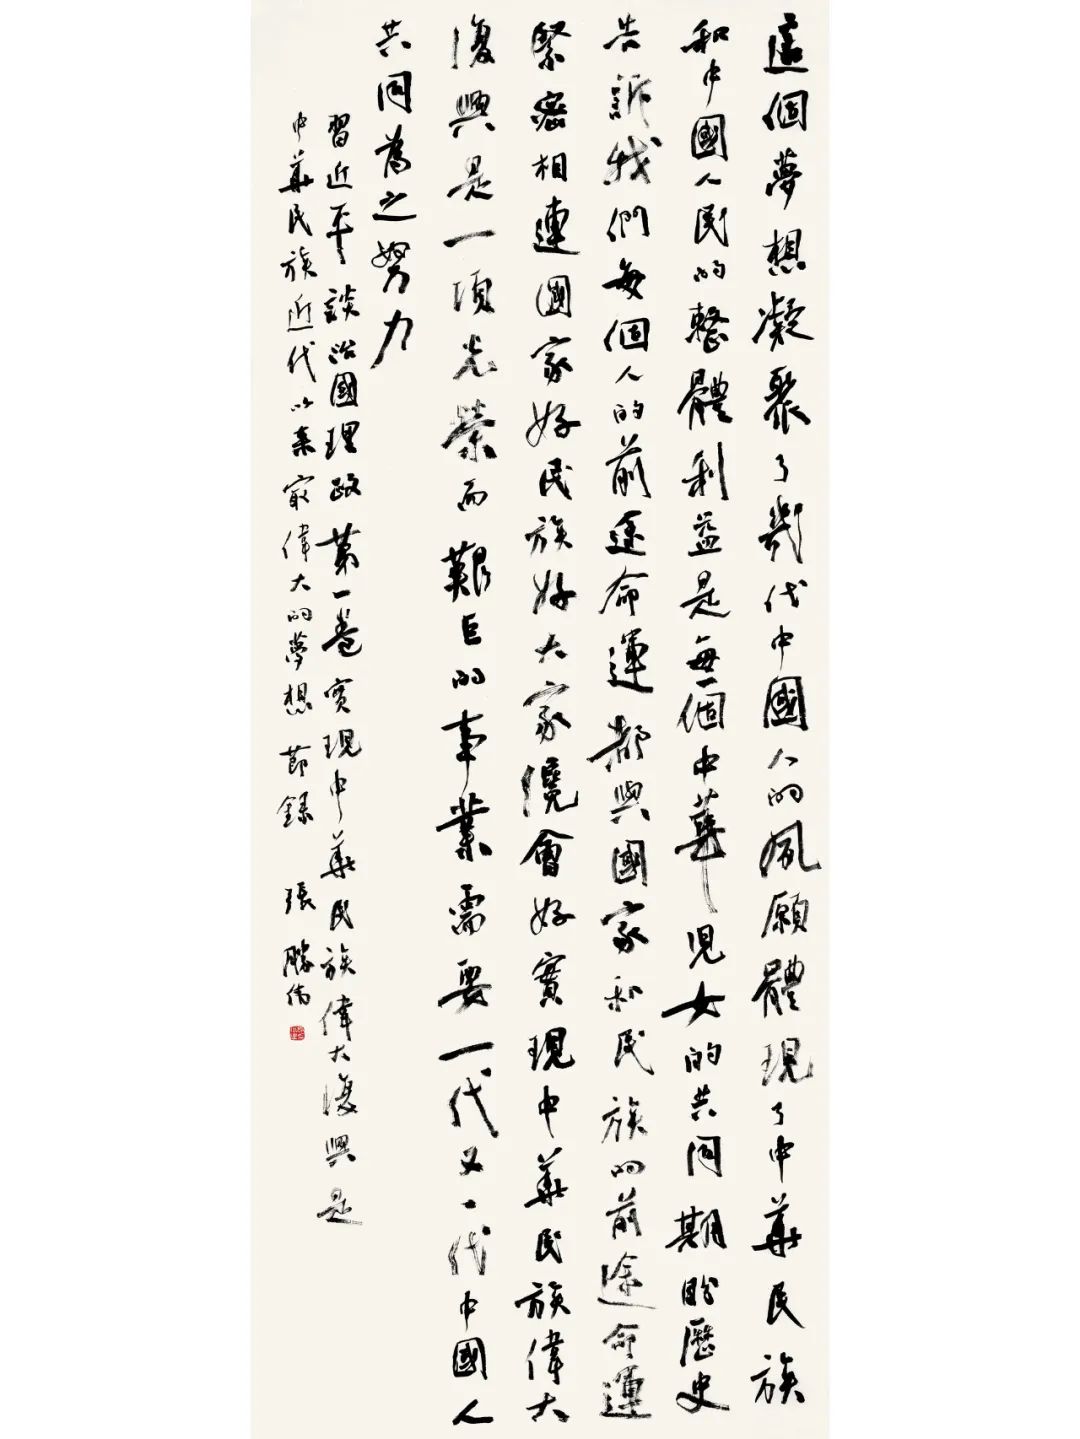 這個夢想凝聚了幾代中國人的夙願體現了中華民族
和中國人民的整體利益是每一個中華兒女的共同期盼歷史
告訴我們每個人的前途命運都與國家和民族的前途命運
緊密相連國家好民族好大家好纔會好實現中華民族偉大
復興是一項光榮而艱巨的事業需要一代又一代中國人
共同為之努力
習近平談治國理政第一卷實現中華民族偉大復興是
中華民族近代以來最偉大的夢想節錄 張勝偉